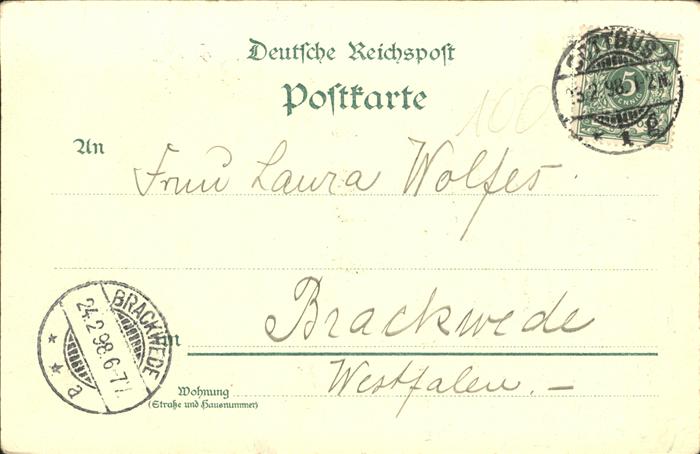 Deutsche Reichspost
Postkarte
COTTBUS
5
An
Frau Laura Wolfes.
Brackwede
BRACKWEDE
24.2.98.6-7
a
Westfalen. –
Wohnung
(Straße und Hausnummer)
100